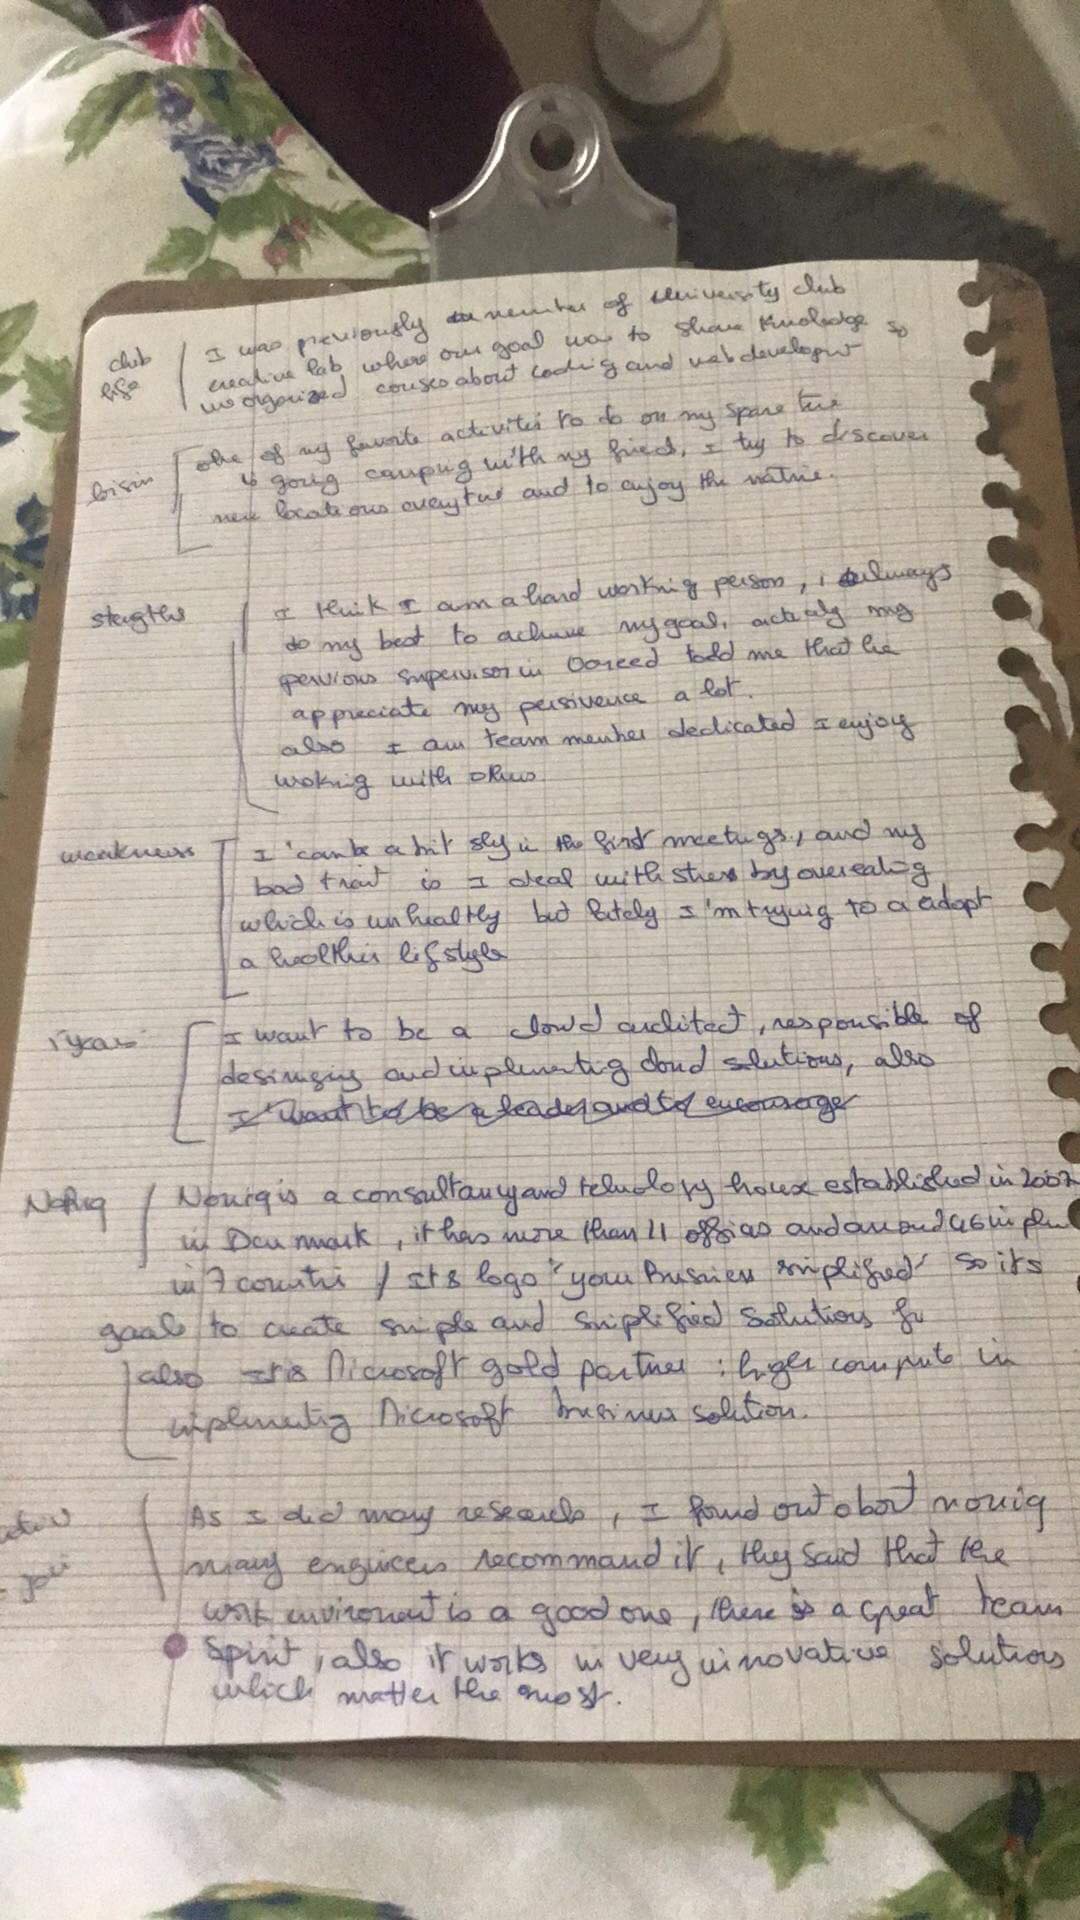 club life
I was previously member of University club
creative lab where our goal was to share knoledge so
we organized couses about coding and web developmt
one of my favorite activities to do on my spare time
is going camping with my friend, I try to discover
new locations everytime and to enjoy the nature.
stengths
I think I am a hard working person, i always
do my best to achieve my goal, actualy my
pervious supervisor in told me that he
appreciate my persivence a lot.
also I am team member dedicated I enjoy
woking with
weakness
I can be a bit shy in the first meetings, and my
bad trait is I deal with stress by overeating
which is unhealthy but lately I'm trying to a adopt
a healthier lifstyle
I want to be a cloud architect, responsible of
and implementing cloud solutions, also
I want to be a leader and to encourage
Noriq
Noriq is a consultancy and tehnology house established in 2007
in Denmark, it has more than 11 offices and around
in 7 countris / It's logo "your Business simplified" so its
goal to create simple and simplified solutions
also It's Microsoft gold partner : high in
implementing Microsoft business solution.
As I did many research, I found out about noriq
many engineers recommand it, they said that the
work environment is a good one, there is a great team
Spirit, also it works in very innovative solutions
which matter the most.